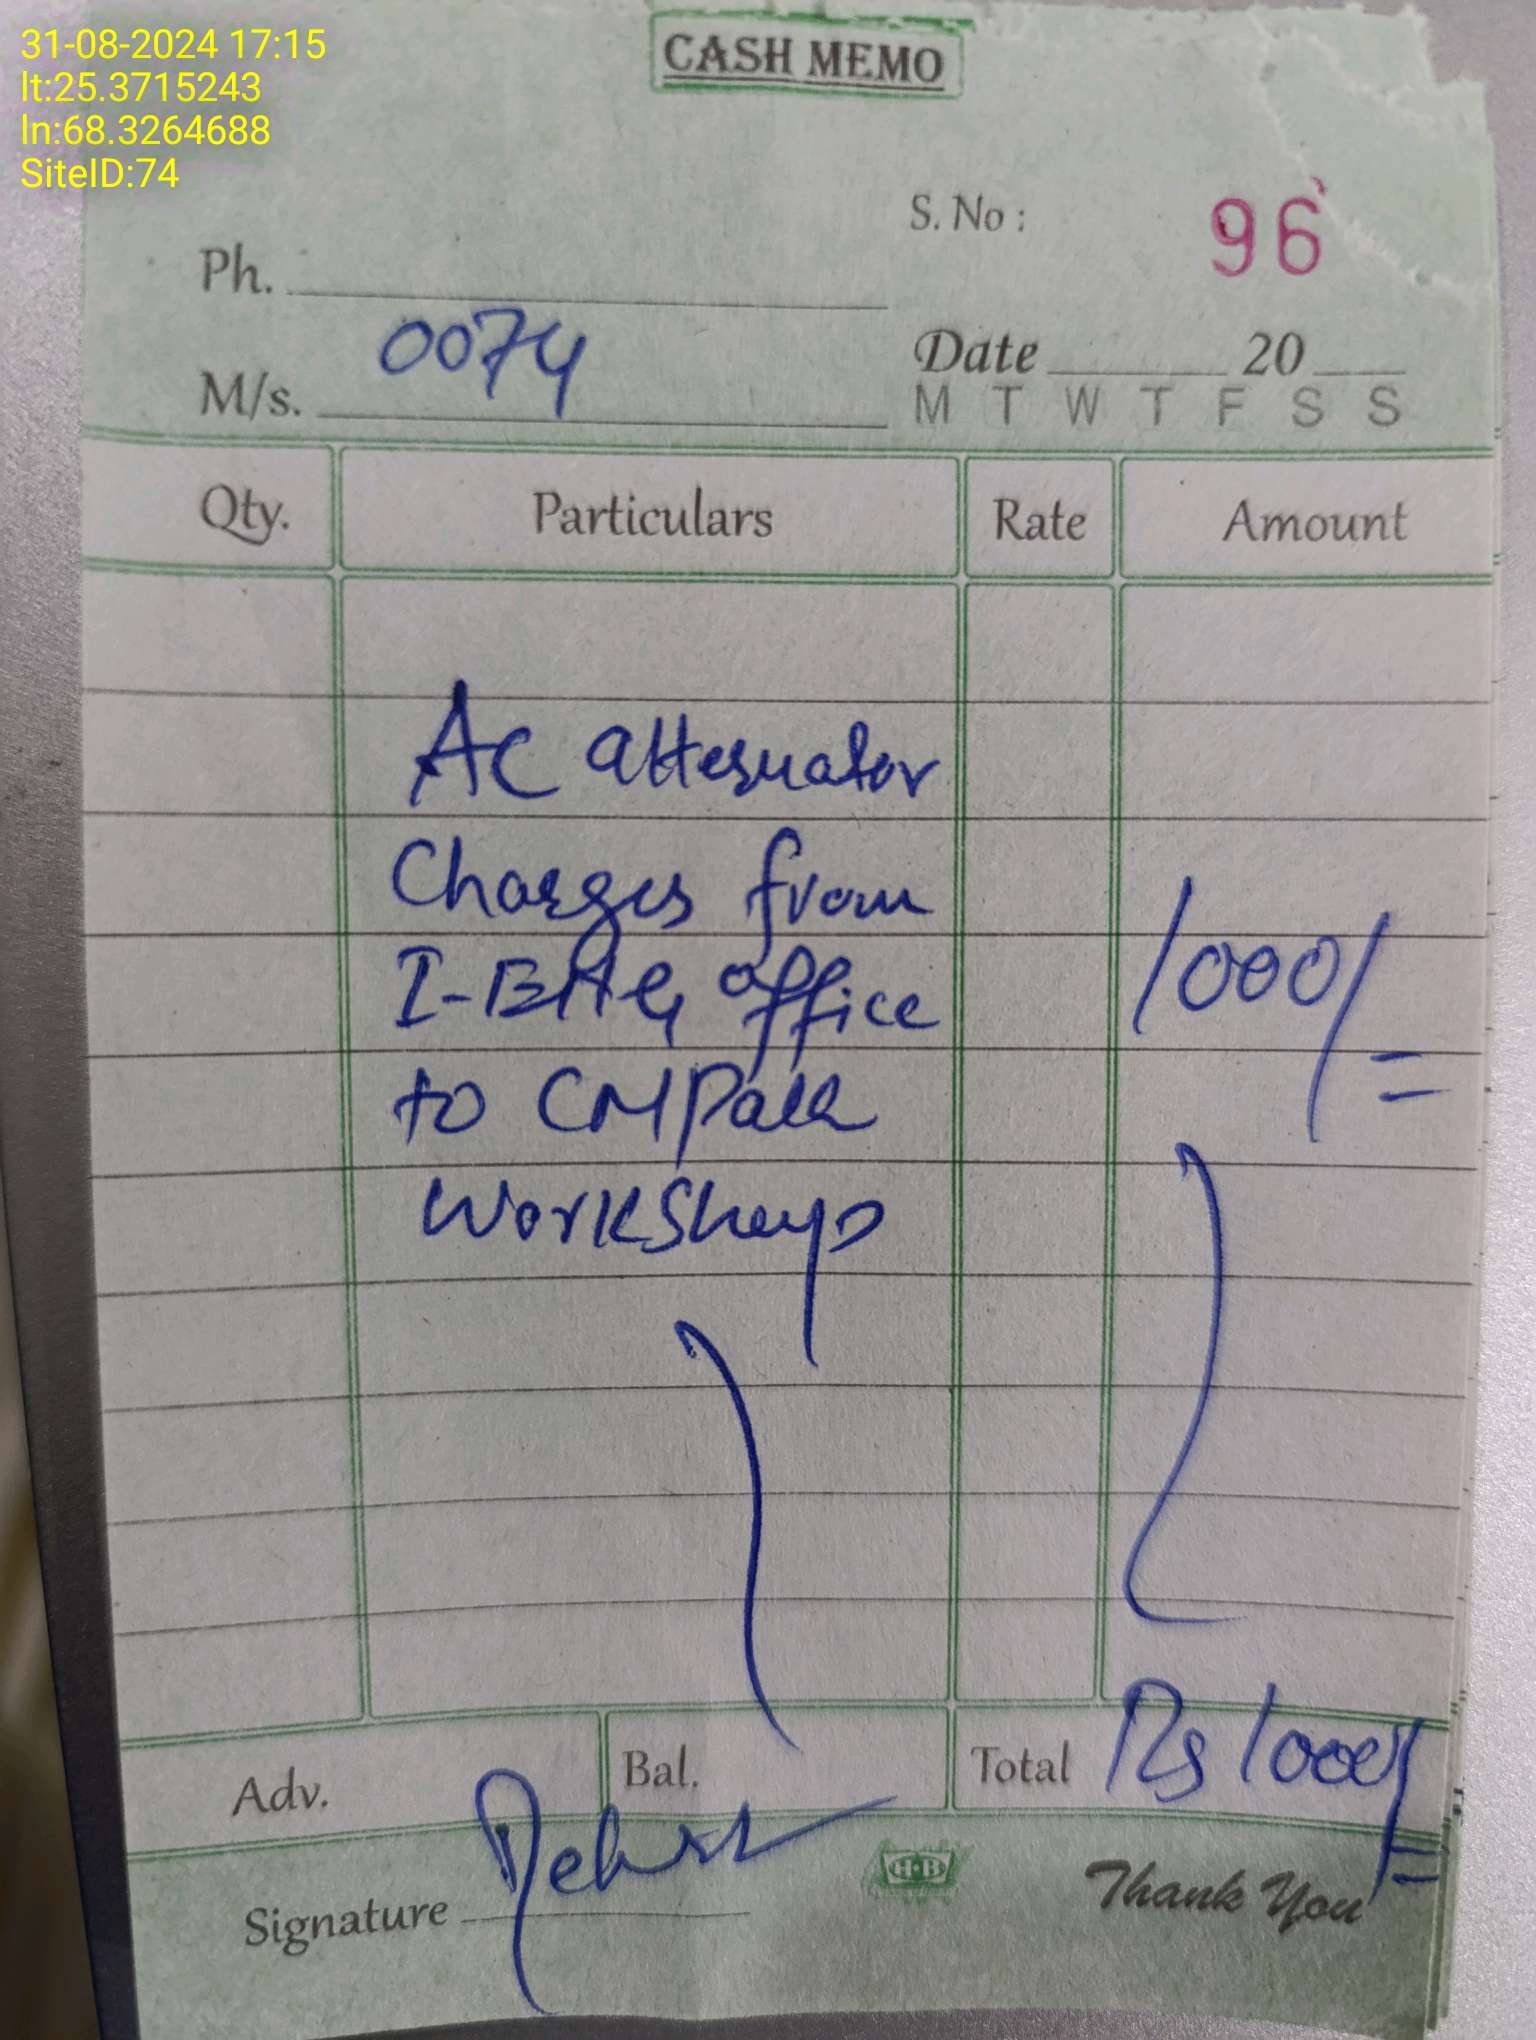 31-08-2024 17:15
lt:25.3715243
ln:68.3264688
SiteID:74
CASH MEMO
S. No : 96
Ph.
Date 20
M/s. 0074
M T W T F S S
Qty. Particulars Rate Amount
Ac attenuator
Charges from
office 1000/=
to
Workshop
Adv. Bal. Total Rs 1000/=
Signature
H·B
Thank You